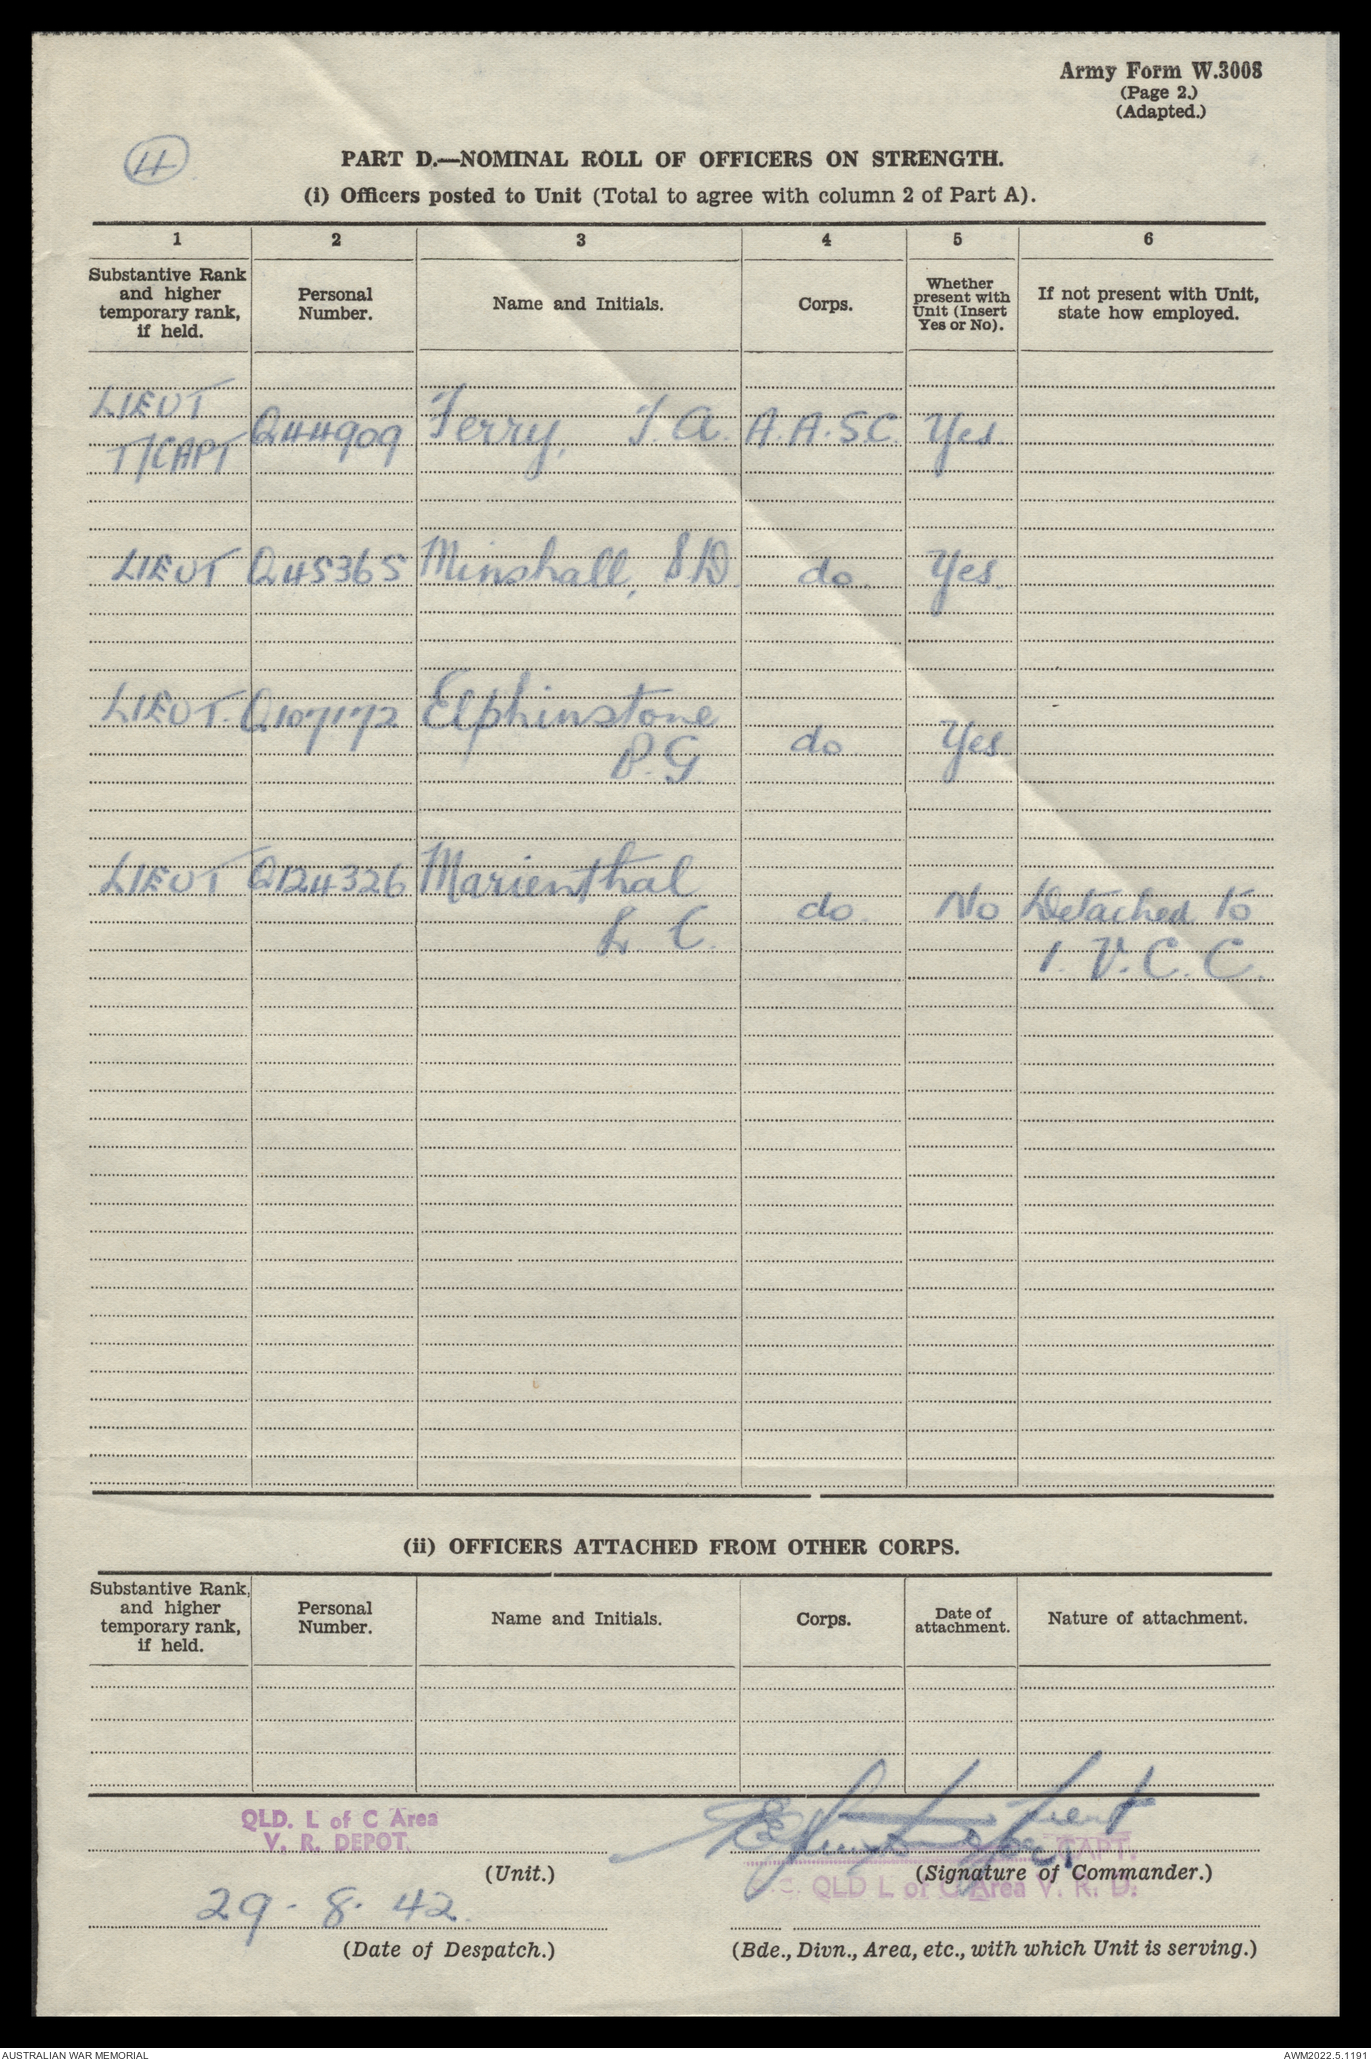 Army Form W.3008
(Page 2.)
(Adapted.)
4
PART D.—NOMINAL ROLL OF OFFICERS ON STRENGTH.
(i) Officers posted to Unit (Total to agree with column 2 of Part A).
1 2 3 4 5 6
Substantive Rank and higher temporary rank, if held.
Personal Number.
Name and Initials.
Corps.
Whether present with Unit (Insert Yes or No).
If not present with Unit, state how employed.
LIEUT
T/CAPT Q44909 Ferry, T. A. A.A.S.C. Yes
LIEUT Q45365 Minshall, S.D. do. Yes.
LIEUT. Q107172 Elphinstone
P.G. do Yes
LIEUT Q124326 Marienthal
L C. do. No Detached to
1. V.C.C.
(ii) OFFICERS ATTACHED FROM OTHER CORPS.
Substantive Rank, and higher temporary rank, if held.
Personal Number.
Name and Initials.
Corps.
Date of attachment.
Nature of attachment.
QLD. L of C Area
V. R. DEPOT.
(Unit.)
Lieut
CAPT.
(Signature of Commander.)
QLD L of C Area V. R. D.
29. 8. 42.
(Date of Despatch.)
(Bde., Divn., Area, etc., with which Unit is serving.)
AUSTRALIAN WAR MEMORIAL
AWM2022.5.1191